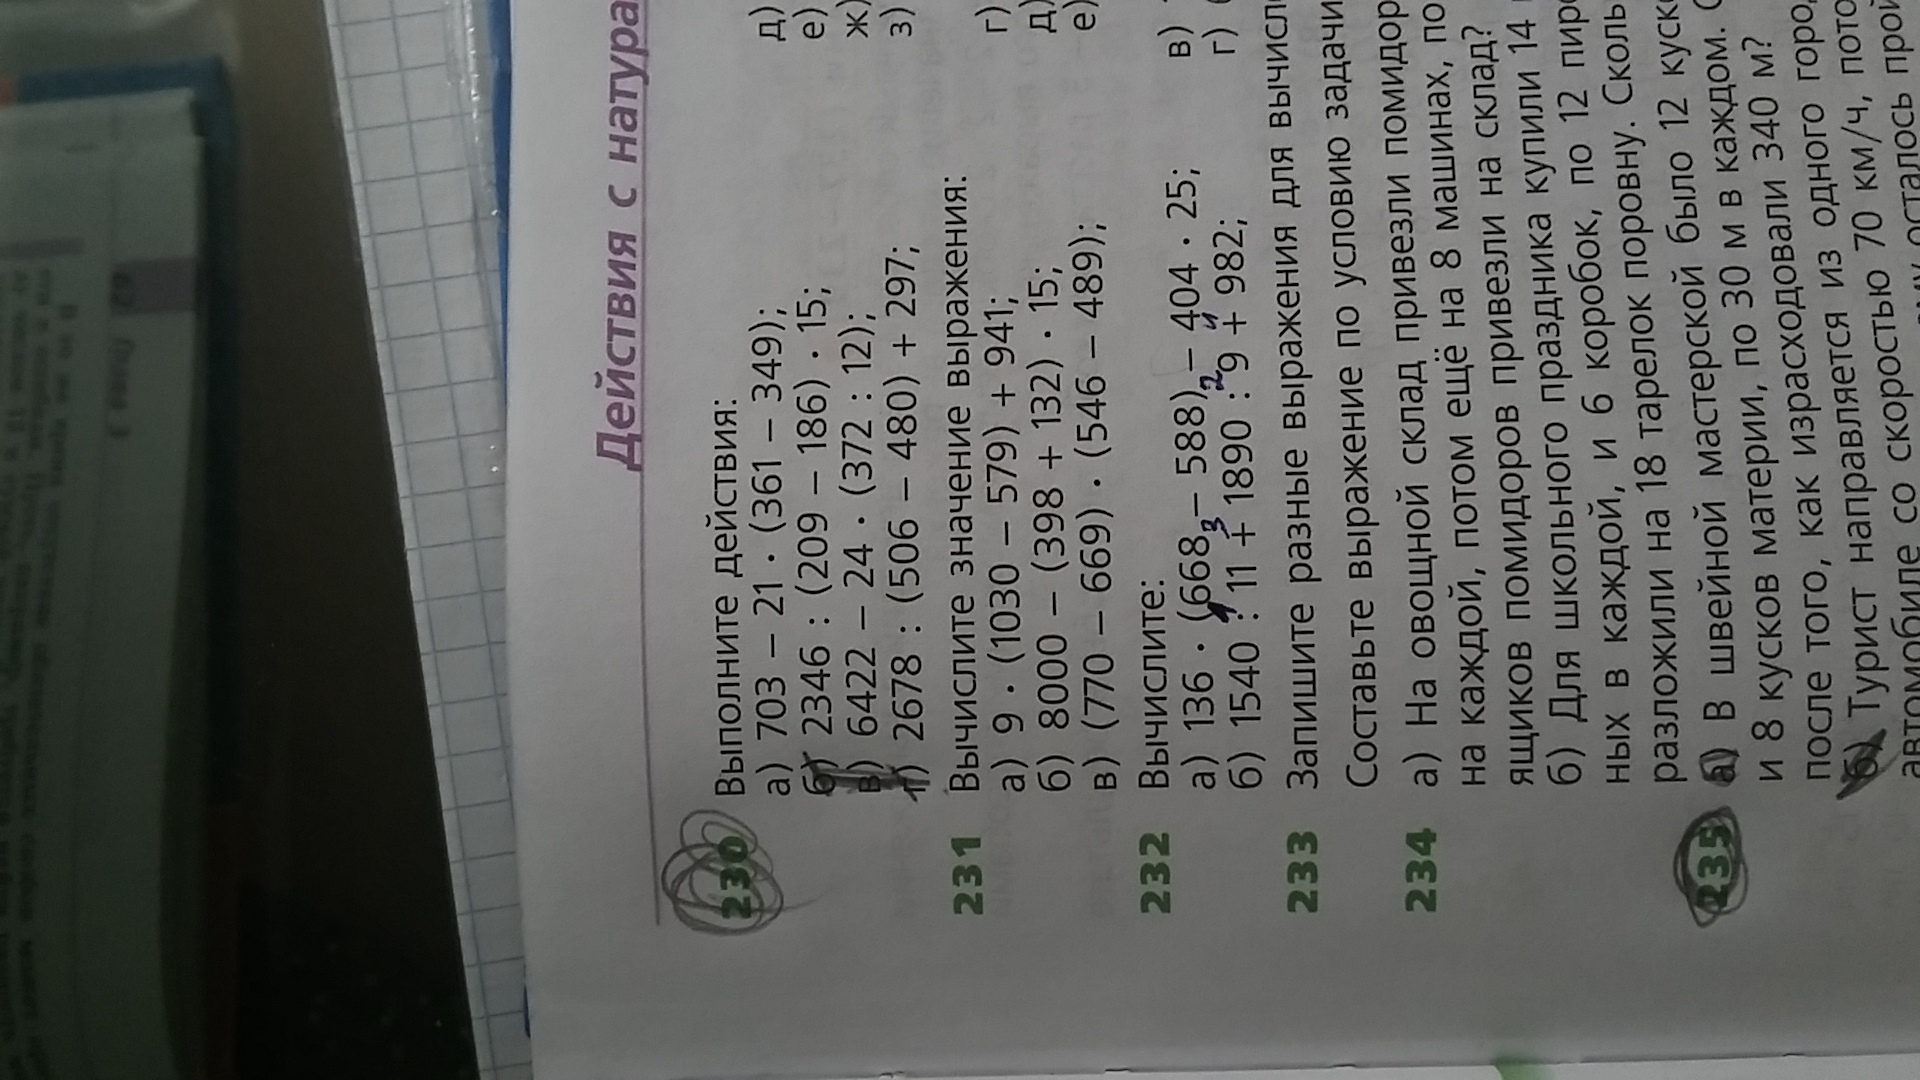 Действия с натура
230 Выполните действия:
а) 703 – 21 · (361 – 349); д)
б) 2346 : (209 – 186) · 15; е)
в) 6422 – 24 · (372 : 12); ж)
г) 2678 : (506 – 480) + 297; з)
231 Вычислите значение выражения:
а) 9 · (1030 – 579) + 941; г)
б) 8000 – (398 + 132) · 15; д)
в) (770 – 669) · (546 – 489); е)
232 Вычислите:
а) 136 · (668 – 588) – 404 · 25; в)
1 3 2 4
б) 1540 : 11 + 1890 : 9 + 982; г) (
233 Запишите разные выражения для вычисл
234 Составьте выражение по условию задачи
а) На овощной склад привезли помидор
на каждой, потом ещё на 8 машинах, по
ящиков помидоров привезли на склад?
б) Для школьного праздника купили 14
ных в каждой, и 6 коробок, по 12 пир
разложили на 18 тарелок поровну. Сколь
235 а) В швейной мастерской было 12 куск
и 8 кусков материи, по 30 м в каждом. С
после того, как израсходовали 340 м?
б) Турист направляется из одного город
автомобиле со скоростью 70 км/ч, пото
осталось прой